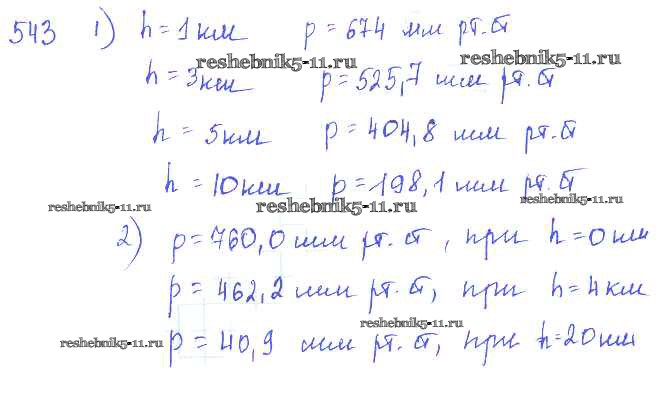 543 1) h = 1 км p = 674 мм рт.ст
reshebnik5-11.ru reshebnik5-11.ru
h = 3 км p = 525,7 мм рт.ст
h = 5 км p = 404,8 мм рт.ст
h = 10 км p = 198,1 мм рт.ст
reshebnik5-11.ru reshebnik5-11.ru reshebnik5-11.ru
2) p = 760,0 мм рт.ст, при h = 0 км
p = 462,2 мм рт.ст, при h = 4 км
reshebnik5-11.ru
p = 40,9 мм рт.ст, при h = 20 км
reshebnik5-11.ru